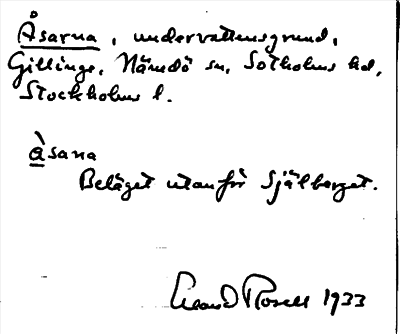 Åsarna, undervattensgrund,
Gillinge, Nämdö sn, Sotholms hd,
Stockholms l.
åsana
Beläget utanför Själberget.
Rosell 1933